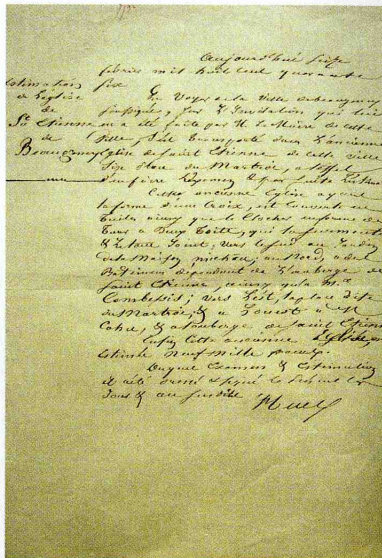 Aujourd'hui seize
février mil huit cent quarante
six
Estimation
de l'église
de
St Etienne
de
Beaugency
Le Voyer de la ville de Beaugency
soussigné, sur l'Invitation qui lui
en a été faite par M. le Maire de cette
ville, s'est transporté dans l'ancienne
église de Saint Etienne de cette ville
Sise place du Martroi, a l'effet
d'en faire
Cette ancienne Eglise ayant
la forme d'une Croix, est couverte en
tuiles ainsi que le Clocher en forme de
Tour a Deux Toits, qui la surmonte
vers le sud au Jardin
de la Maison au Nord, a des
Bâtiments dépendant de l'auberge de
Saint Etienne, ainsi qu'a Mr
vers l'Est, la place dite
du Martroi, & a l'ouest a M
& a l'auberge de Saint Etienne
Enfin Cette ancienne Eglise est
Estimée Neuf Mille francs.
Duquel Examen & Estimation
a été dressé & signé le présent les
Jour & an susdits